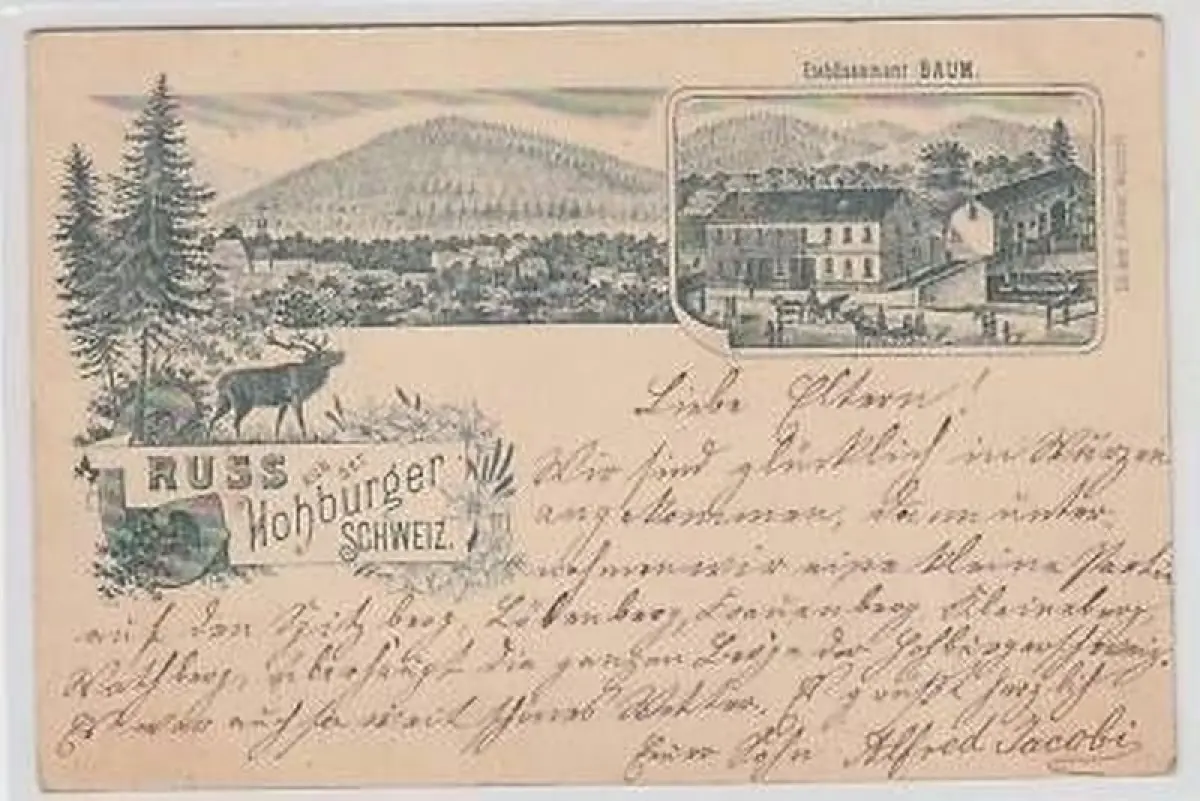 Etablissement BAUM.
RUSS aus der
Hohburger
SCHWEIZ.
Liebe Eltern!
Wir sind glücklich in Wurzen
angekommen, dann unter-
nehmen wir eine kleine Partie
auf den Spitzberg, Löbenberg, Frauenberg, Kleineberg
überhaupt die ganzen Berge der Hohburgerschweiz.
Es war auch so weit schönes Wetter. Es grüßt herzlich
Euer Sohn Alfred Jacobi